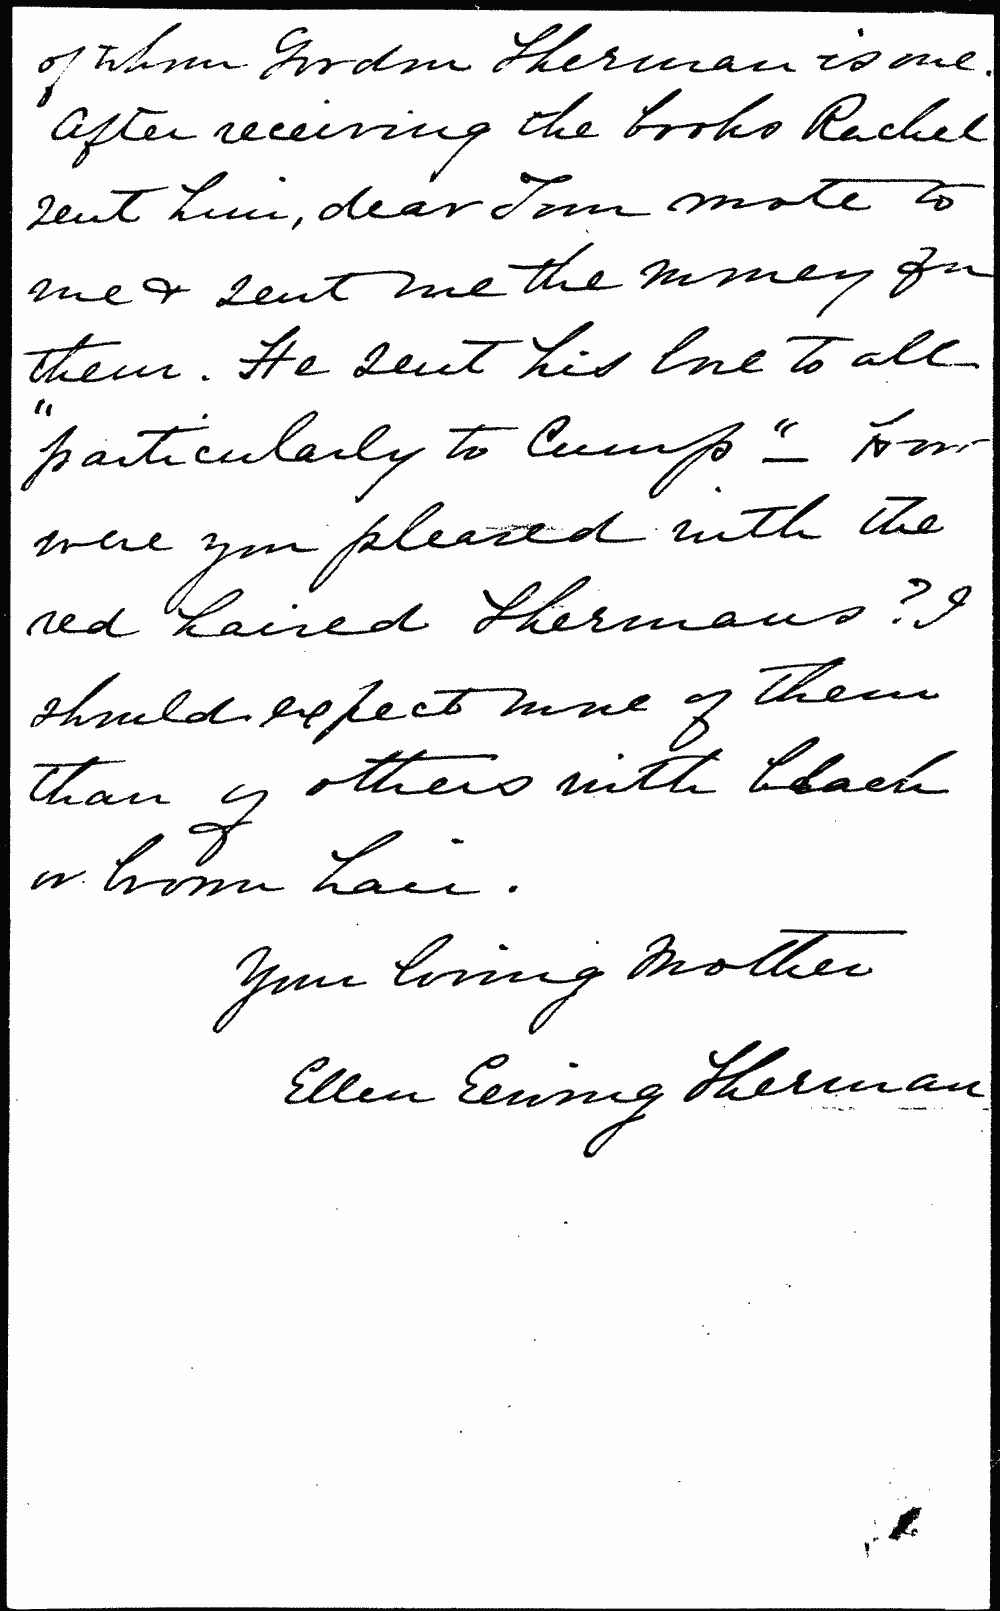 of whom Gordon Sherman is one.
After receiving the books Rachel
sent him, dear Tom wrote to
me & sent me the money for
them. He sent his love to all
"particularly to Cump" How
were you pleased with the
red haired Shermans? I
should expect more of them
than of others with black
or brown hair.
Your loving Mother
Ellen Ewing Sherman